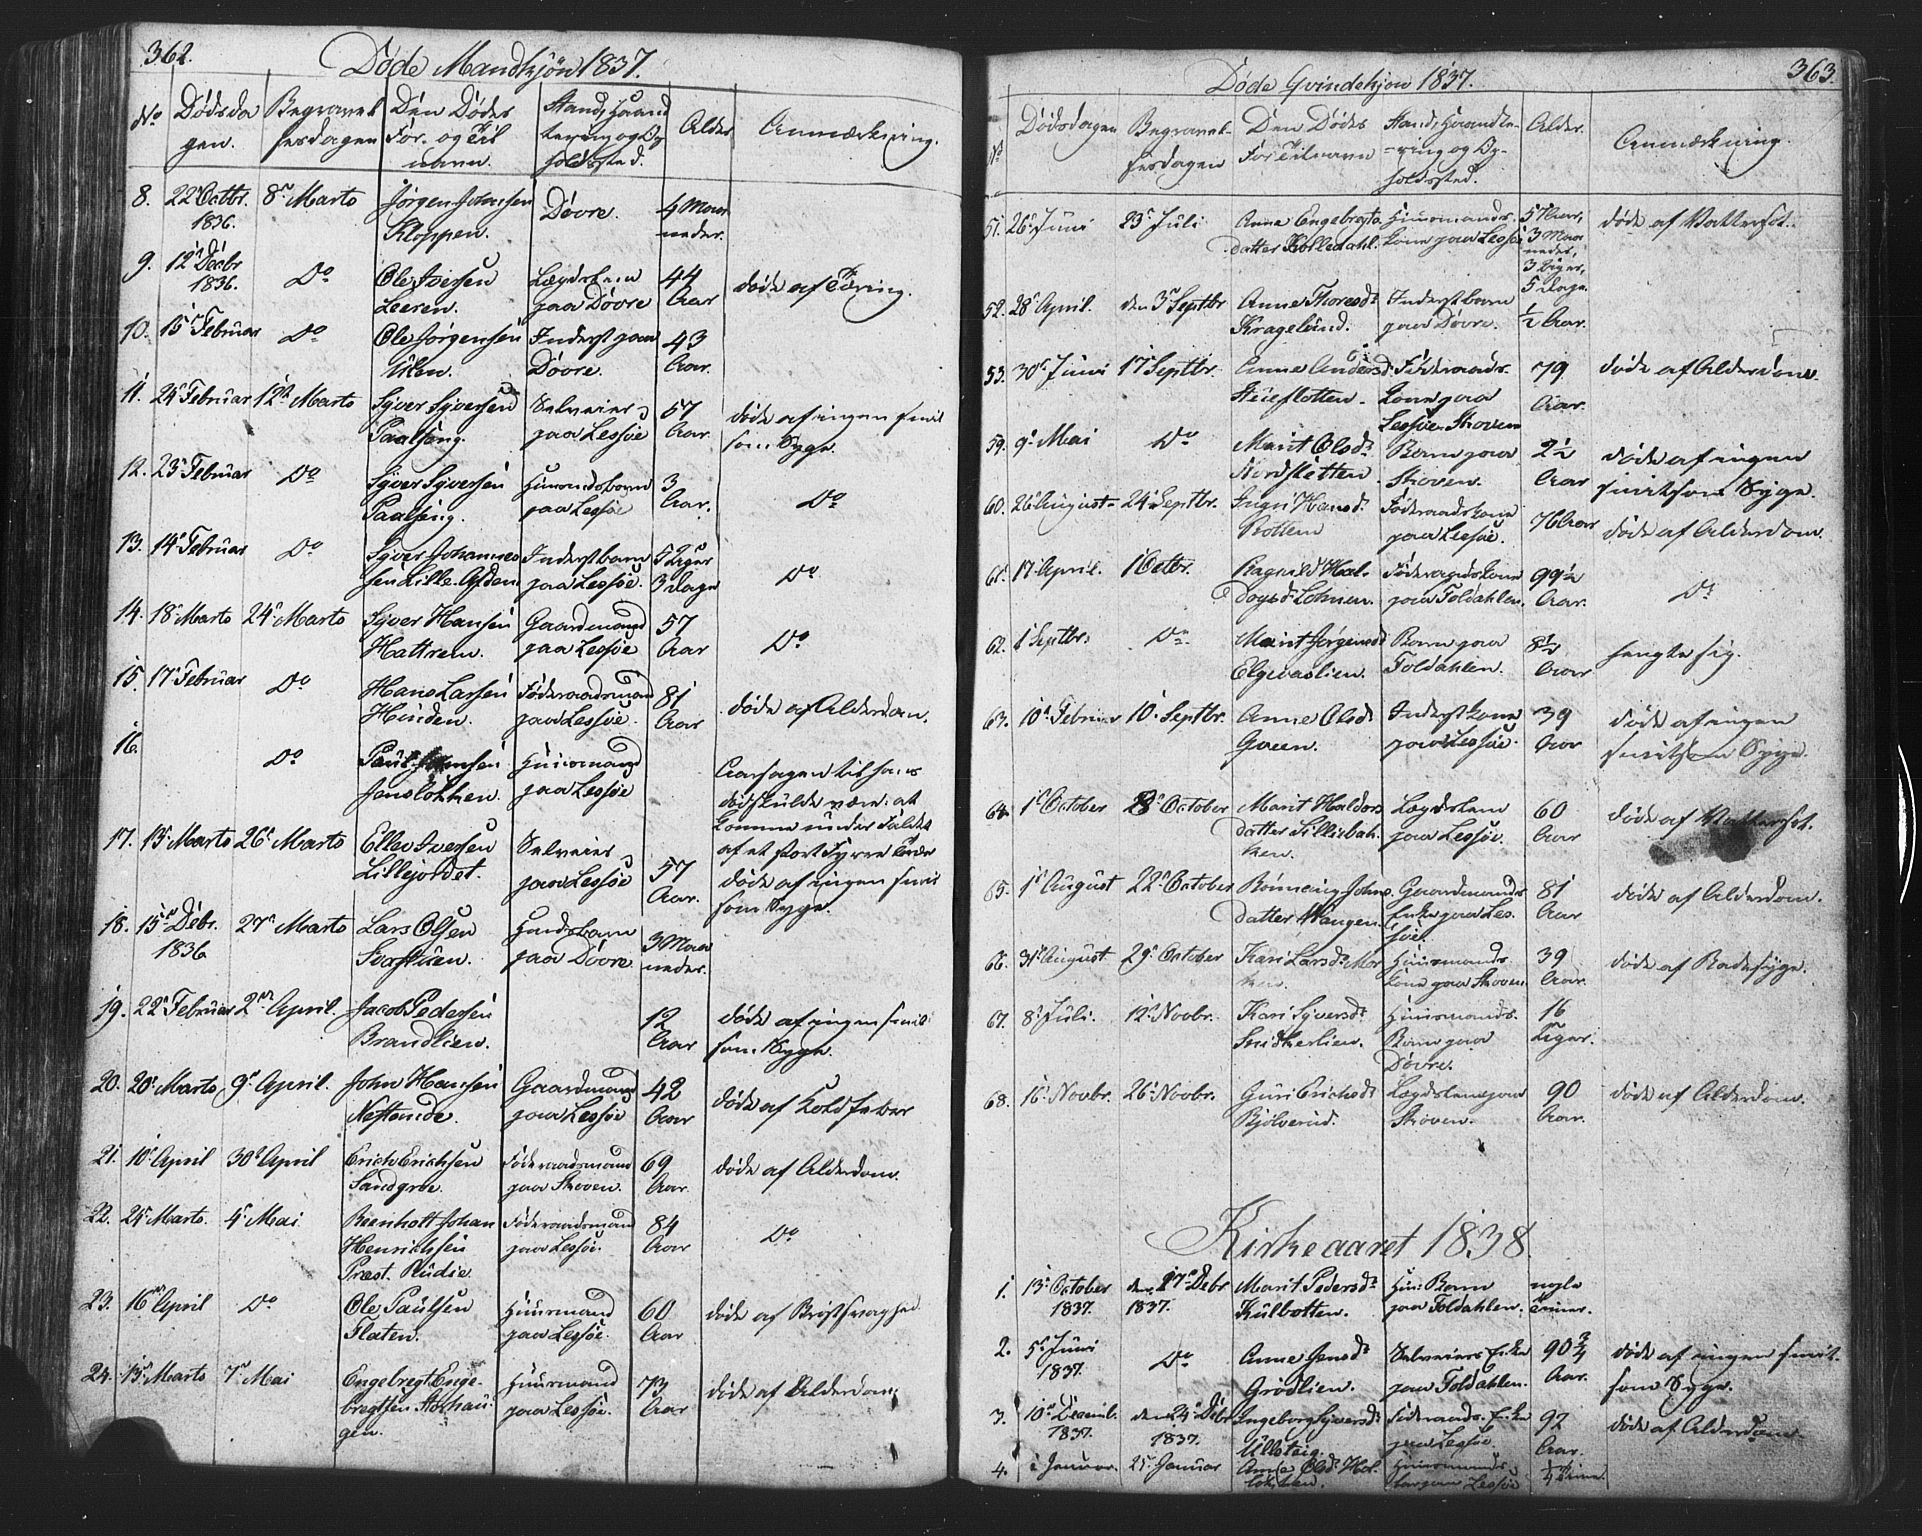 362.
Døde Mandkjön 1837.
No
Dødsda
gen.
Begravel
sesdagen
Den Dødes
For- og Til
navn.
Stand, Haand
tering og Op
holdssted.
Alder
Anmærkning.
8. 22 Octbr. 1836. 8de Marts Jörgen Johnsen Kloppen. Dovre. 4 Maa
neder.
9. 12 Decbr 1836. Do Ole Iversen Leeren. Lægdslem paa Dovre 44 Aar døde af Tæring.
10. 15 Februar Do Ole Jörgensen Uken. Inderst paa Dovre. 43 Aar.
11. 24 Februar 12te Marts Syver Syversen Paalseng. Selveier paa Lessøe 57 Aar døde af ingen smit
som Syge.
12. 23 Februar Do Syver Syversen Paalseng. Huusmdsbarn paa Lessøe 3 Aar. Do
13. 14 Februar Do Syver Johannes
sen Lille- Inderstbarn paa Lessøe. 5 Uger 3 Dage Do
14. 18 Marts 24 Marts Syver Hansen Hattrem. Gaardmand paa Lessøe 57 Aar Do
15. 17 Februar Do Hans Larsen Hinden. Föderaadsmand paa Lessøe. 81 Aar døde af Alderdom.
16. Do Paul Jensløkken. Huusmand paa Lessøe Aarsagen til hans
død skulde være: at
komme under Faldet
af et stort Fyrre
17. 13 Marts 26 Marts Ellev Iversen Lillejordet. Selveier paa Lessøe 57 Aar. døde af ingen smit
som Syge.
18. 15 Debr. 1836 27 Marts Lars Olsen Huusbarn paa Dovre 3 Maa
neder.
19. 22 Februar 2den April. Jacob Pedersen Brandlien. 12 Aar døde af ingen smit
som Syge.
20. 20 Marts 9de April. John Hansen Neftende. Gaardmand paa Lessøe 42 Aar døde af Koldfeber
21. 10 April 30 April Erich Erichsen Sandgroe. Föderaadsmand paa Skoven. 69 Aar. døde af Alderdom.
22. 24 Marts. 4 Mai Reenholt Johan
Henrichsen
Præst. Rudie. Föderaadsmand paa Lessøe. 84 Aar Do
23. 16 April Do Ole Paulsen Flaten. Huusmand paa Lessøe. 60 Aar døde af Brystsvaghed
24. 13 Marts 7 Mai Engebregt Enge-
bregtsen
gen. Huusmand paa Lessøe. 73 Aar døde af Alderdom
363
Døde Qvindekjön 1837.
No
Dødsdagen
Begravel-
sesdagen
Den Dødes
For & Tilnavn
Stand, Haandte-
-ring og Op-
holdssted.
Alder.
Anmærkning.
51. 26 Juni 23 Juli Anne Engebregts
datter Kolledahl. Huusmands-
kone paa Lessøe 57 Aar,
3 Maa
neder,
3 Uger,
5 Dage. døde af Vattersot.
52. 28 April. den 3 Septbr. Anne Thoresdr Kragelund. Inderstbarn paa Dovre. ½ Aar.
53. 30 Juni 17 Septbr. Anne Andersd. Steieflotten. Föderaads-
kone paa
Lessøe-Skoven 79 Aar. døde af Alderdom.
59. 9 Mai Do Marit Olsdr Nordsletten. Barn paa Skoven. 2½ Aar døde af ingen
smitsom Syge.
60. 26 August 24 Septbr. Ingri Hansdr Bottem Föderaadskone paa Lessøe. 76 Aar døde af Alderdom.
61. 17 April. 1 Octbr. Ragnild Hal-
Lohnen. Föderaadskone paa Foldahlen. 99½ Aar. Do
62. 1 Septbr. Do Marit Jörgensd Elgevaslien. Barn paa Foldahlen. 8½ Aar hengte sig.
63. 10 Februar 10 Septbr. Anne Olsdr Qveen. Inderstkone paa Lessøe. 39 Aar døde af ingen
smitsom Syge.
64. 1 October 8 October Marit Haldors
datter Lillebak-
ken. Lægdslem paa Lessøe. 60 Aar døde af Vattersot.
65. 1 August 22 October Rönnaug Johns
datter Vangen. Gaardmands
Enke paa Les-
søe. 81 Aar døde af Alderdom.
66. 31 August 29 October Kari Larsdr Mor
ken. Huusmands
kone paa Skoven. 39 Aar. døde af Radesyge.
67. 8 Juli. 12 Novbr. Kari Syversdr Huusmands-
Barn paa
Dovre. 16 Uger.
68. 16 Novbr. 26 Novbr. Guri Erichsdr Bjölverud. Lægdslem paa Skoven. 90 Aar. døde af Alderdom.
Kirkeaaret 1838.
1. 13 October 1837. den 17 Debr 1837. Marit Pedersdr Kulbotten. Huus Barn paa Foldahlen. nogle
Timer.
2. 5 Juni 1837. Do Anne Jensdr Grödlien. Selveiers Enke paa Foldahlen. 90¾ Aar. døde af ingen smit-
som Syge.
3. 10 Decemb. 1837. den 24 Debr 1837. Ingeborg Syversdr Ullsteig. Föderaads. Enke paa Lessøe. 92 Aar. døde af Alderdom.
4. Januar. 21 Januar Anne Olsdr Hol-
Huusmands-
barn paa Lessøe ¼ Time.